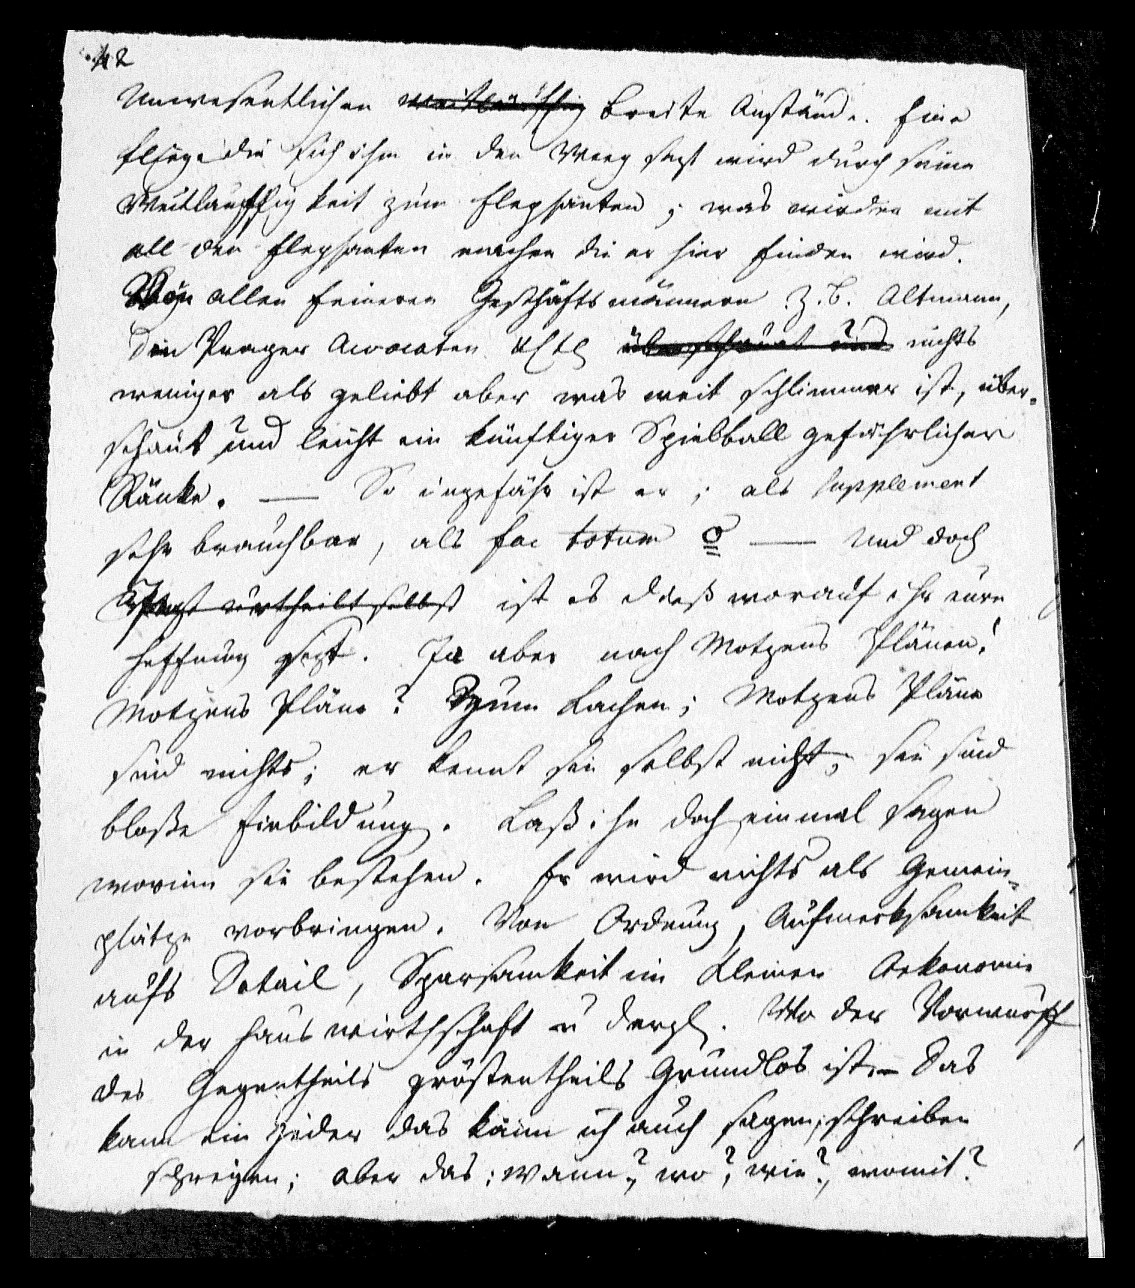 42
Unwesentlichen weitläuffig breite Anstände. Eine
Fliege die sich ihm in den Weeg sezt wird durch seine
Weitlauffigkeit zum Elephanten; was wird er mit
all den Elephanten machen die er hier finden wird.
Von allen feineren Geschäftsmännern z.B. Altmann,
den Prager Advocaten überschaut und nichts
weniger als geliebt aber was weit schlimmer ist, über-
schaut und leicht ein künftiger Spielball gefährlicher
Ränke. — So ungefähr ist er; als Supplement
sehr brauchbar, als fac totum — Und doch
urtheilt selbst ist es dieß worauf ihr eure
Hoffnung sezt. Ja aber nach Motzens Plänen!
Motzens Pläne? Zum Lachen; Motzens Pläne
sind nichts; er kennt sie selbst nicht, sie sind
bloße Einbildung. Laß ihn doch einmal sagen
worinn sie bestehen. Er wird nichts als Gemein-
plätze vorbringen. Von Ordnung, Aufmerksamkeit
aufs Detail, Sparsamkeit im Kleinen Oekonomie
in der Hauswirthschaft u dergl. Wo der Vorwurf
des Gegentheils gröstentheils Grundlos ist. — Das
kann ein jeder das kann ich auch sagen, schreiben
schreyen; aber das: wann?, wo?, wie?, womit?